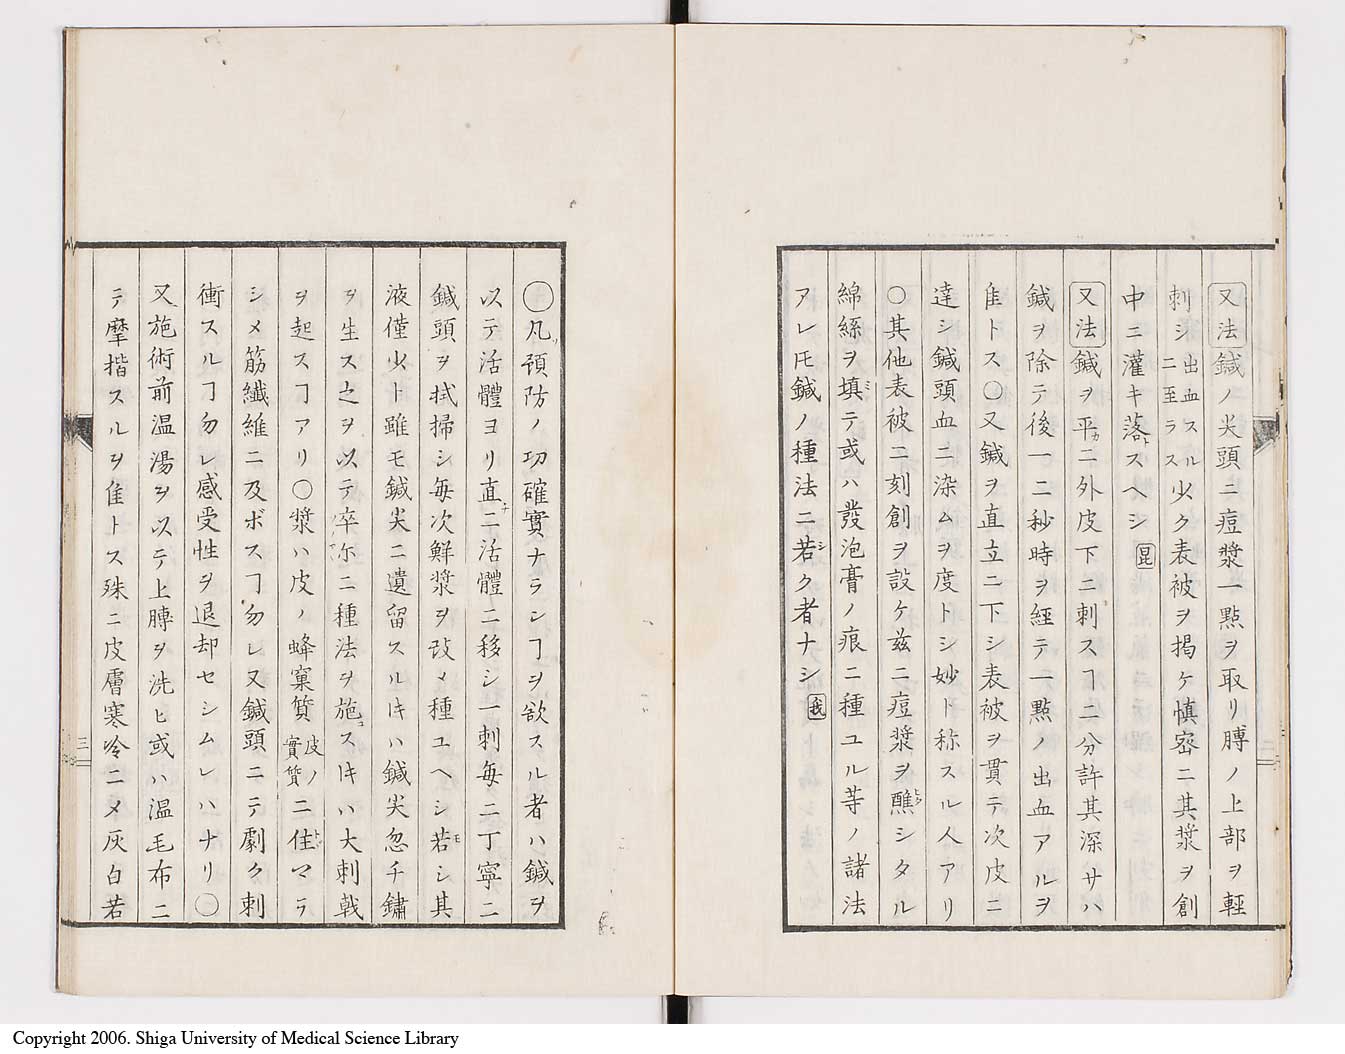 又法鍼ノ尖頭ニ痘漿一點ヲ取リ膊ノ上部ヲ輕
刺シ出血スルニ至ラス少ク表被ヲ揭ケ慎密ニ其漿ヲ創
中ニ灌キ落トスヘシ昆
又法鍼ヲ平カニ外皮下ニ刺スヿ二分許其深サハ
鍼ヲ除テ後一二秒時ヲ經テ一點ノ出血アルヲ
隹トス〇又鍼ヲ直立ニ下シ表被ヲ貫テ次皮ニ
達シ鍼頭血ニ染ムヲ度トシ妙ト称スル人アリ
〇其他表被ニ刻創ヲ設ケ茲ニ痘漿ヲ醮シタル
綿絲ヲ填テ或ハ發泡膏ノ痕ニ種ユル等ノ諸法
アレ𪜈鍼ノ種法ニ若シク者ナシ我
〇凡預防ノ功確實ナランヿヲ欲スル者ハ鍼ヲ
以テ活體ヨリ直チニ活體ニ移シ一刺毎ニ丁寧ニ
鍼頭ヲ拭掃シ毎次鮮漿ヲ改メ種ユヘシ若モシ其
液僅少ト雖モ鍼尖ニ遺留スルキハ鍼尖忽チ鏽
ヲ生ス之ヲ以テ卒尓ニ種法ヲ施コスキハ大刺戟
ヲ起スヿアリ〇漿ハ皮ノ蜂窠質皮ノ實質ニ住トヽマラ
シメ筋纖維ニ及ボスヿ勿レ又鍼頭ニテ劇ク刺
衝スルヿ勿レ感受性ヲ退却セシムレハナリ〇
又施術前温湯ヲ以テ上膊ヲ洗ヒ或ハ温毛布ニ
テ摩揩スルヲ隹トス殊ニ皮膚寒冷ニメ灰白若
三
Copyright 2006. Shiga University of Medical Science Library